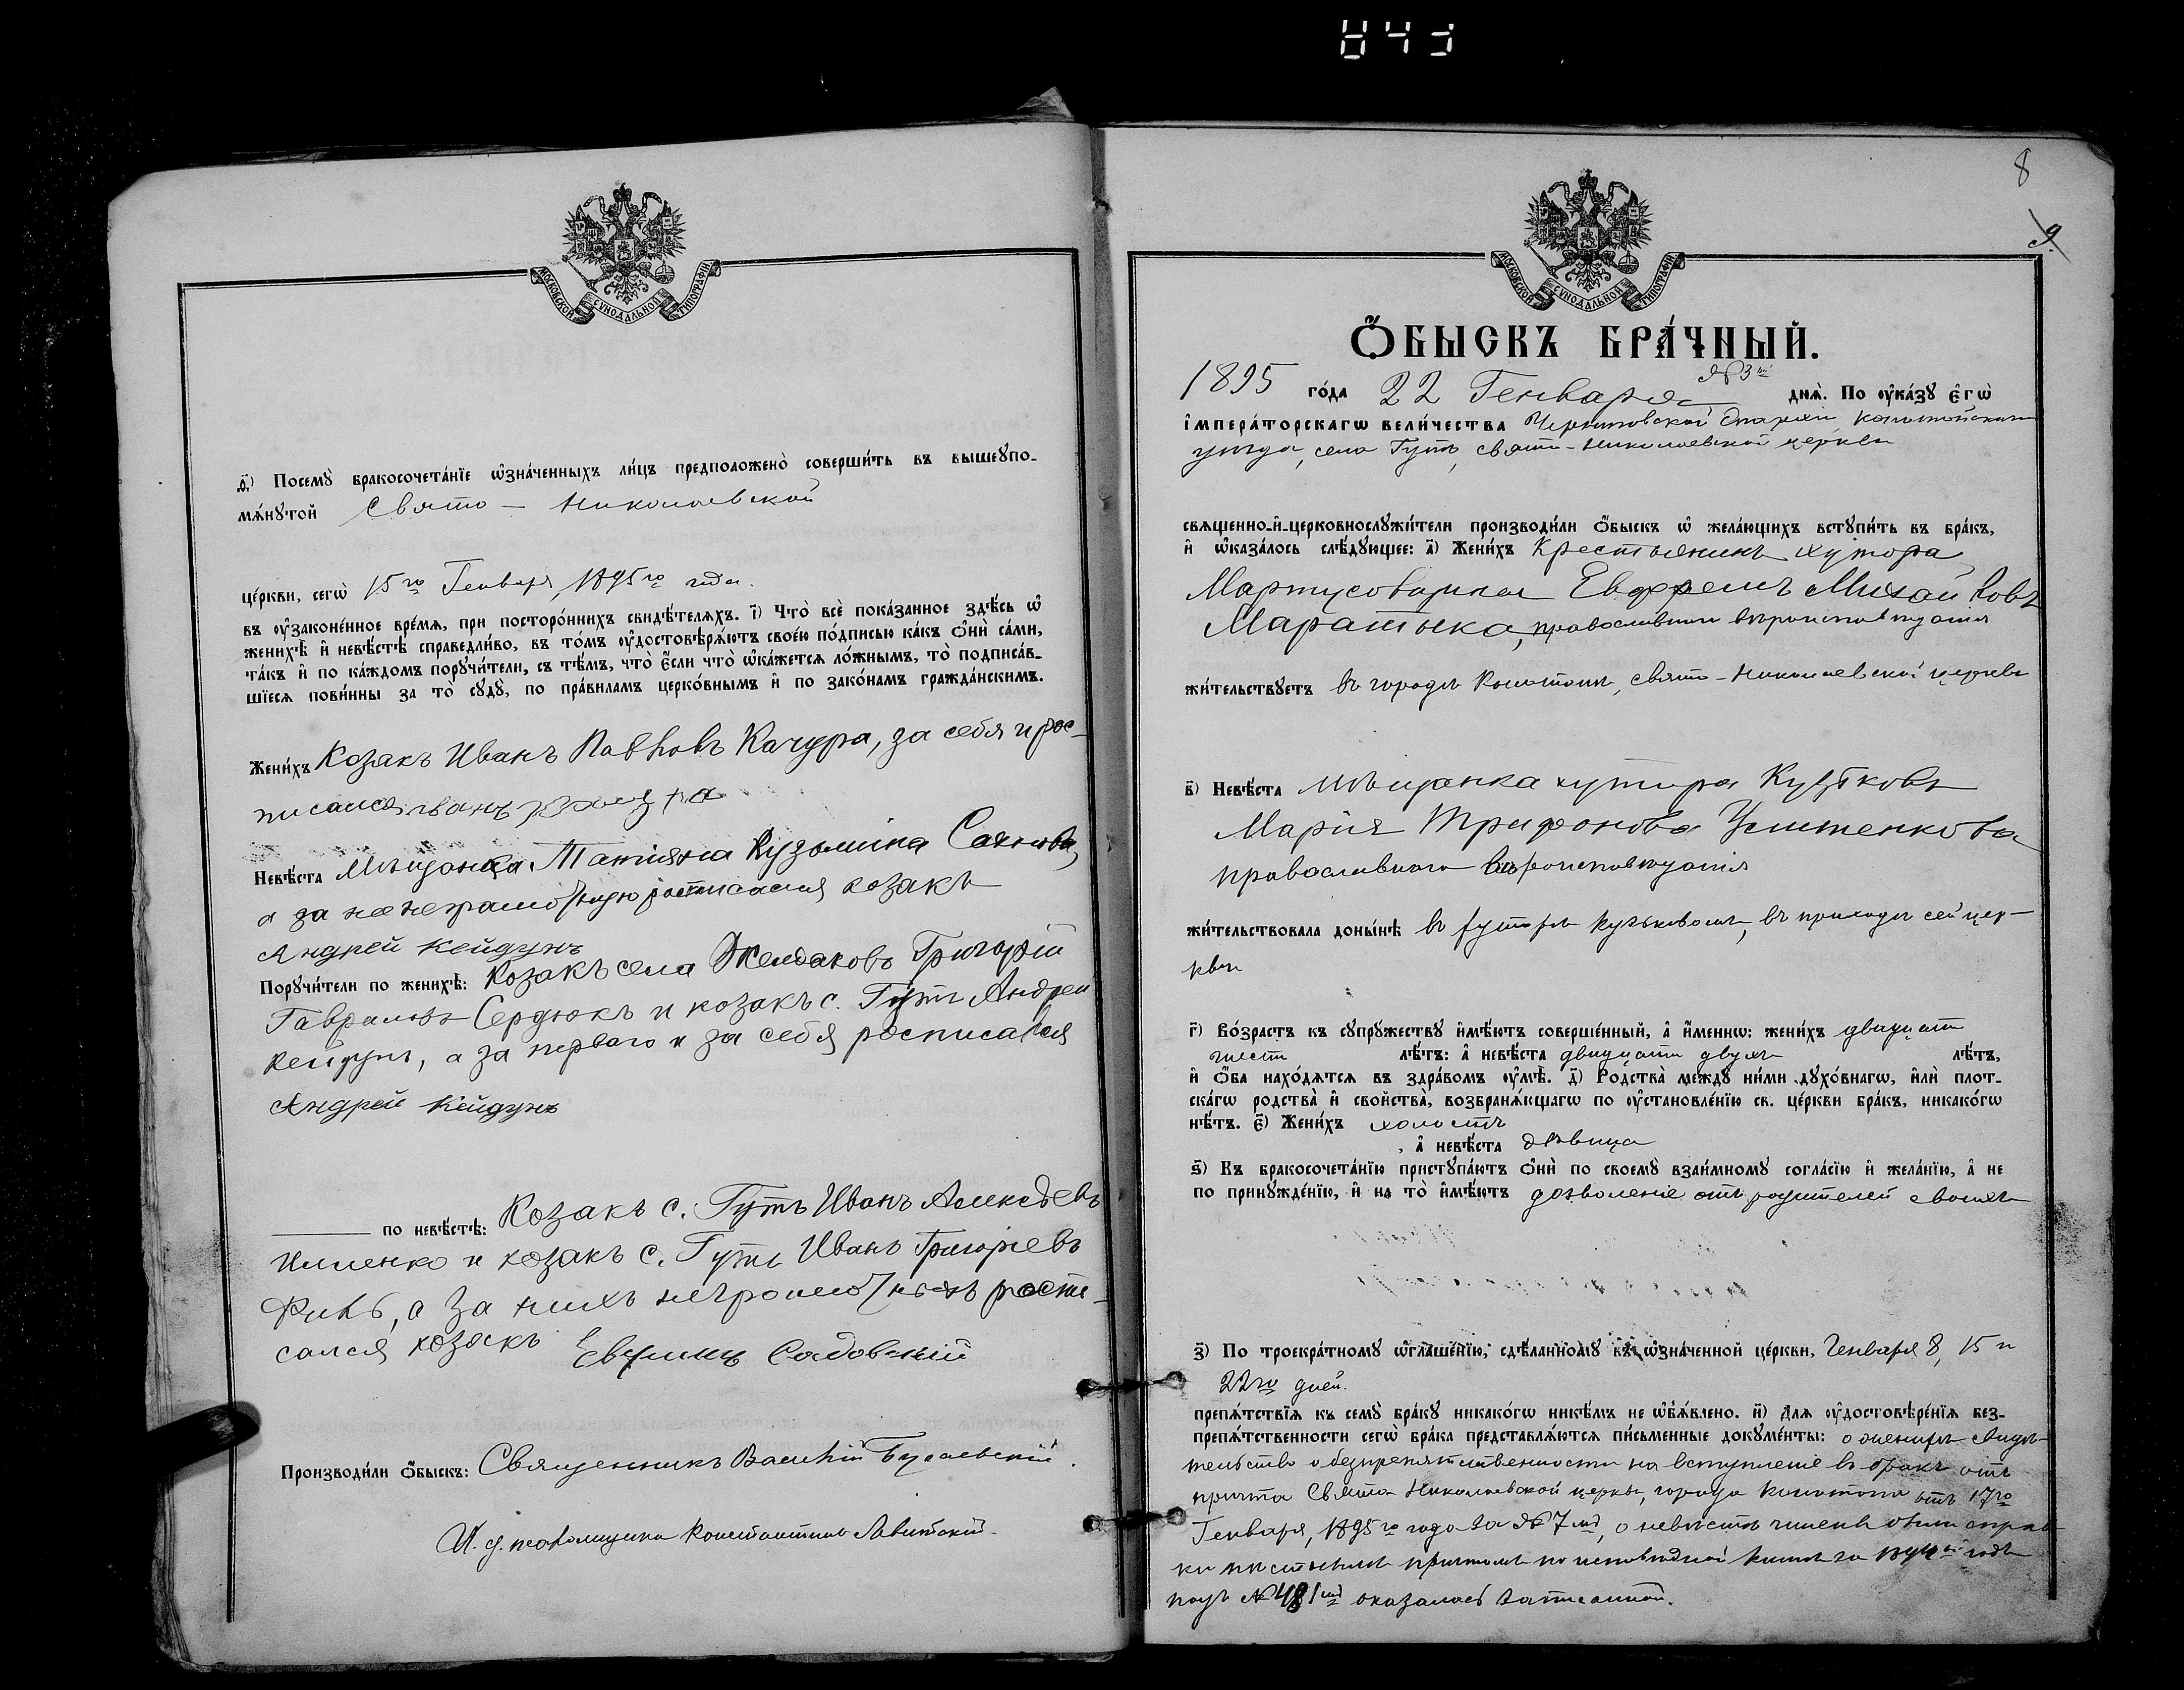 МОСКОВСКОЙ СУНОДАЛЬНОЙ ТИПОГРАФІИ
ѳ҃) Посемꙋ̀ бракосочета́нїе ѡ҆зна́ченныхъ ли́цъ предположено̀ соверши́ть въ вышеꙋпо-
мѧ́нꙋтой Свято - Николаевской
це́ркви, сегѡ̀ 15го Генваря, 1895го года.
въ ᲂу҆зако́ненное вре́мѧ, при посторо́ннихъ свидѣ́телѧхъ. і҃) Что̀ всѐ пока́занное здѣ́сь ѡ҆
женихѣ̀ и҆ невѣ́стѣ справедли́во, въ то́мъ ᲂу҆достовѣрѧ́ютъ свое́ю по́дписью ка́къ ѻ҆нѝ са́ми,
та́къ и҆ по ка́ждомъ порꙋчи́тели, съ тѣ́мъ, что̀ є҆́сли что̀ ѡ҆ка́жетсѧ ло́жнымъ, то̀ подписа́в-
шїесѧ пови́нны за то̀ сꙋдꙋ̀, по пра́виламъ церко́внымъ и҆ по зако́намъ гражда́нскимъ.
Жени́хъ Козакъ Иванъ Павловъ Качура, за себя и рос-
писался Иванъ
Невѣ́ста Мѣщанка Татіяна Кузьмина
а за нее неграмотную росписался козакъ
Андрей Кейдунъ
Порꙋчи́тели по женихѣ̀: Козакъ села Желдаковъ Григорій
Гавриловъ Сердюкъ и козакъ с. Гутъ Андрей
Кейдунъ, а за перваго и за себя росписался
Андрей Кейдунъ
по невѣ́стѣ: Козакъ с. Гутъ Иванъ Алексѣевъ
и козакъ с. Гутъ Иванъ Григорьевъ
а за нихъ неграмотныхъ роспи-
сался козакъ Садовскій
Производи́ли ѻ҆́быскъ: Священникъ Василій
И. д. псаломщика Константинъ
8
9.
МОСКОВСКОЙ СУНОДАЛЬНОЙ ТИПОГРАФІИ
Ѻ҆́БЫСКЪ БРА́ЧНЫЙ.
№ 3й
1895 го́да 22 Генваря днѧ̀. По ᲂу҆ка́зꙋ є҆гѡ̀
і҆мпера́торскагѡ вели́чества Черниговской Епархіи, Конотопскаго
уѣзда, села Гутъ, Свято-Николаевской церкви
свѧще́нно-и҆-церковнослꙋжи́тели производи́ли ѻ҆́быскъ ѡ҆ жела́ющихъ встꙋпи́ть въ бра́къ,
и҆ ѡ҆каза́лось слѣ́дꙋющее: а҃) Жени́хъ Крестьянинъ хутора
Михайловъ
православнаго вѣроисповѣданія
жи́тельствꙋетъ въ городѣ Конотопѣ, Свято-Николаевской церкви
в҃) Невѣ́ста Мѣщанка хутора
Марія Трифонова
православнаго вѣроисповѣданія
жи́тельствовала доны́нѣ въ хуторѣ въ приходѣ сей цер-
кви
г҃) Во́зрастъ къ сꙋпрꙋ́жествꙋ и҆мѣ́ютъ соверше́нный, а҆ и҆́меннѡ: жени́хъ двадцати
шести лѣ́тъ: а҆ невѣ́ста двадцати двухъ лѣ́тъ,
и҆ ѻ҆́ба нахо́дѧтсѧ въ здра́вомъ ᲂу҆мѣ̀. д҃) Родства̀ междꙋ̀ ни́ми дꙋхо́внагѡ, и҆лѝ плот-
ска́гѡ родства̀ и҆ сво́йства̀, возбранѧ́ющагѡ по ᲂу҆становле́нїю св. це́ркви бра́къ, никако́гѡ
нѣ́тъ. є҃) Жени́хъ холостъ
, а҆ невѣ́ста дѣвица
ѕ҃) Къ бракосочета́нїю пристꙋпа́ютъ ѻ҆нѝ по своемꙋ̀ взаи́мномꙋ согла́сїю и҆ жела́нїю, а҆ не
по принꙋжде́нїю, и҆ на то̀ и҆мѣ́ютъ дозволеніе отъ родителей своихъ
з҃) По троекра́тномꙋ ѡ҆глаше́нїю, сдѣ́ланномꙋ въ ѡ҆зна́ченной це́ркви, Генваря 8, 15 и
22го дней.
препѧ́тствїѧ къ семꙋ̀ бра́кꙋ никако́гѡ никѣ́мъ не ѡ҆б̾ѧ́влено. и҃) Длѧ ᲂу҆достовѣре́нїѧ без-
препѧ́тственности сегѡ̀ бра́ка представлѧ́ютсѧ пи́сьменные докꙋме́нты: о женихѣ свидѣ-
тельство о безпрепятственности на вступленіе въ бракъ отъ
причта Свято-Николаевской церкви, города Конотопа отъ 17го
Генваря, 1895го года за № 7мъ, о невѣстѣ
причтомъ по исповѣдной книгѣ за годъ
подъ № 481мъ оказалась записанной.